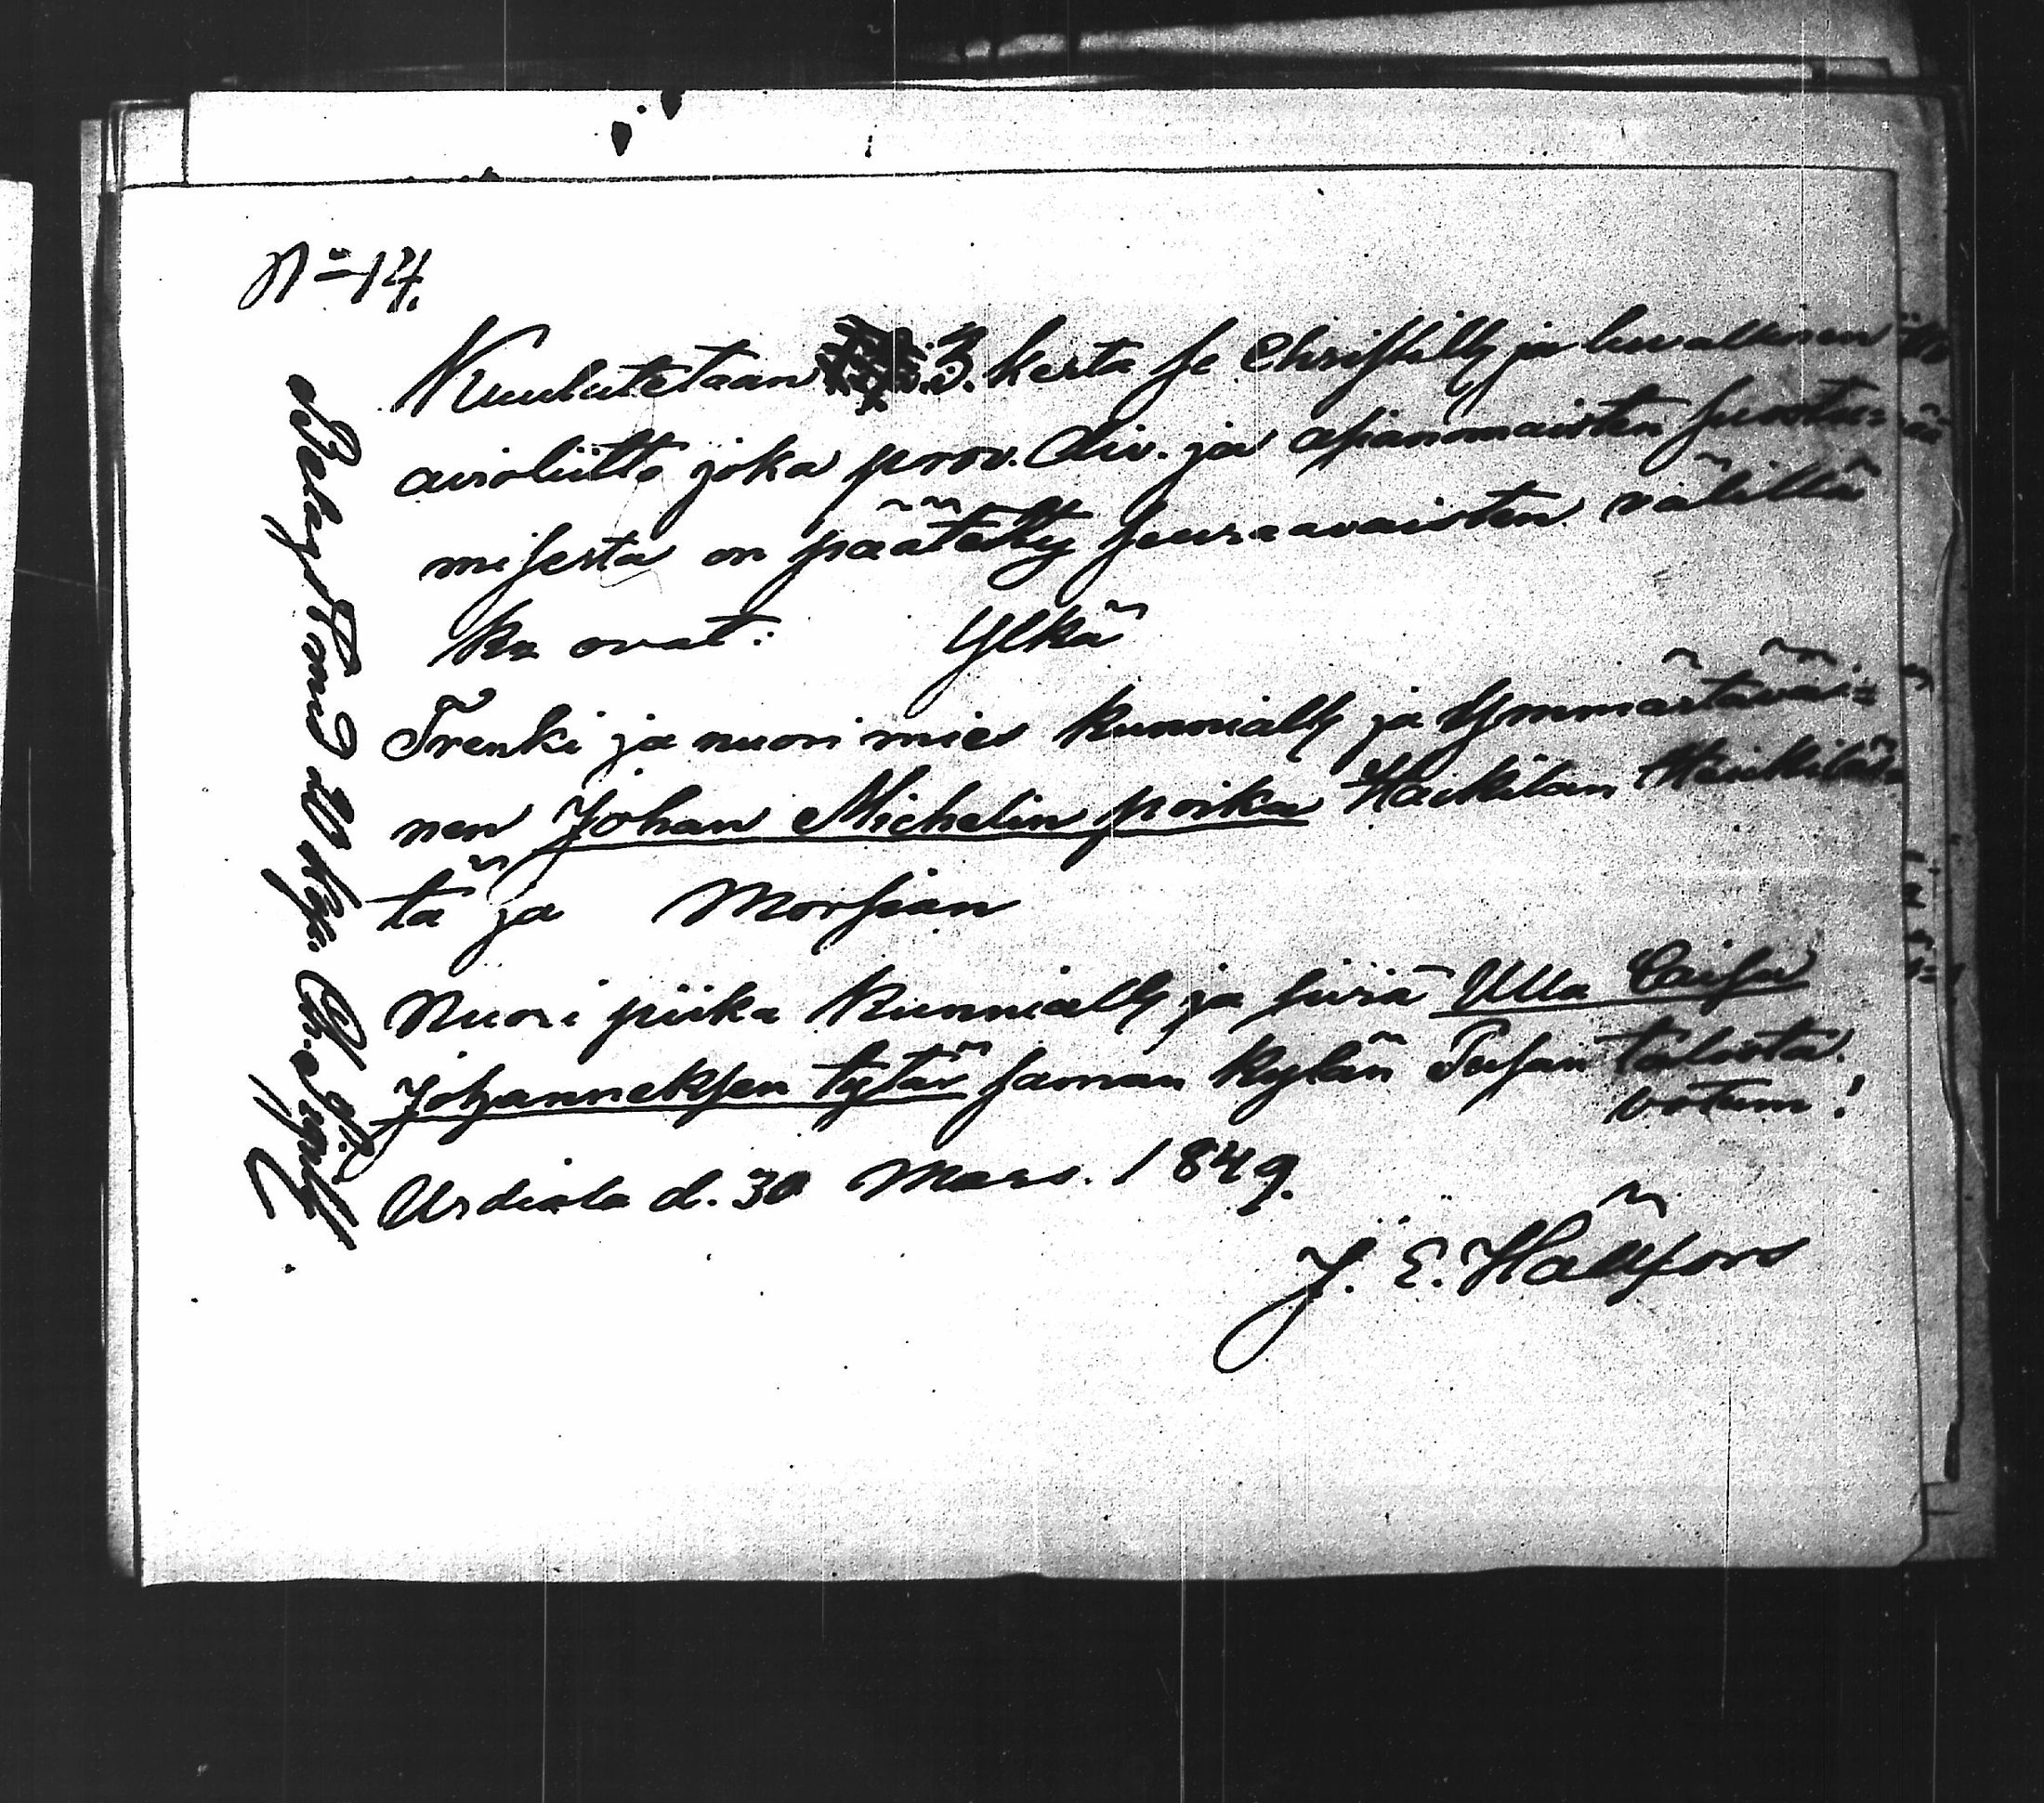 No 14.
Kuulutetaan 3. kerta se Christill. ja luvallinen
avioliitto joka prov. div. ja asianomaisten suostu=
misesta on päätetty seuraavaisten välillä
ku ovat: Ylkä
Trenki ja nuori mies kunniall. ja Ymmärtäväi=
nen Johan Michelin poika Haikilan Heikkiläs=
tä ja Morsian
Nuori piika kunniall. ja siviä Ulla Caisa
Johanneksen tytär saman kylän talosta.
votum!
Urdiala d. 30 Mars. 1849.
J. E. Hällfors
20 Kop.